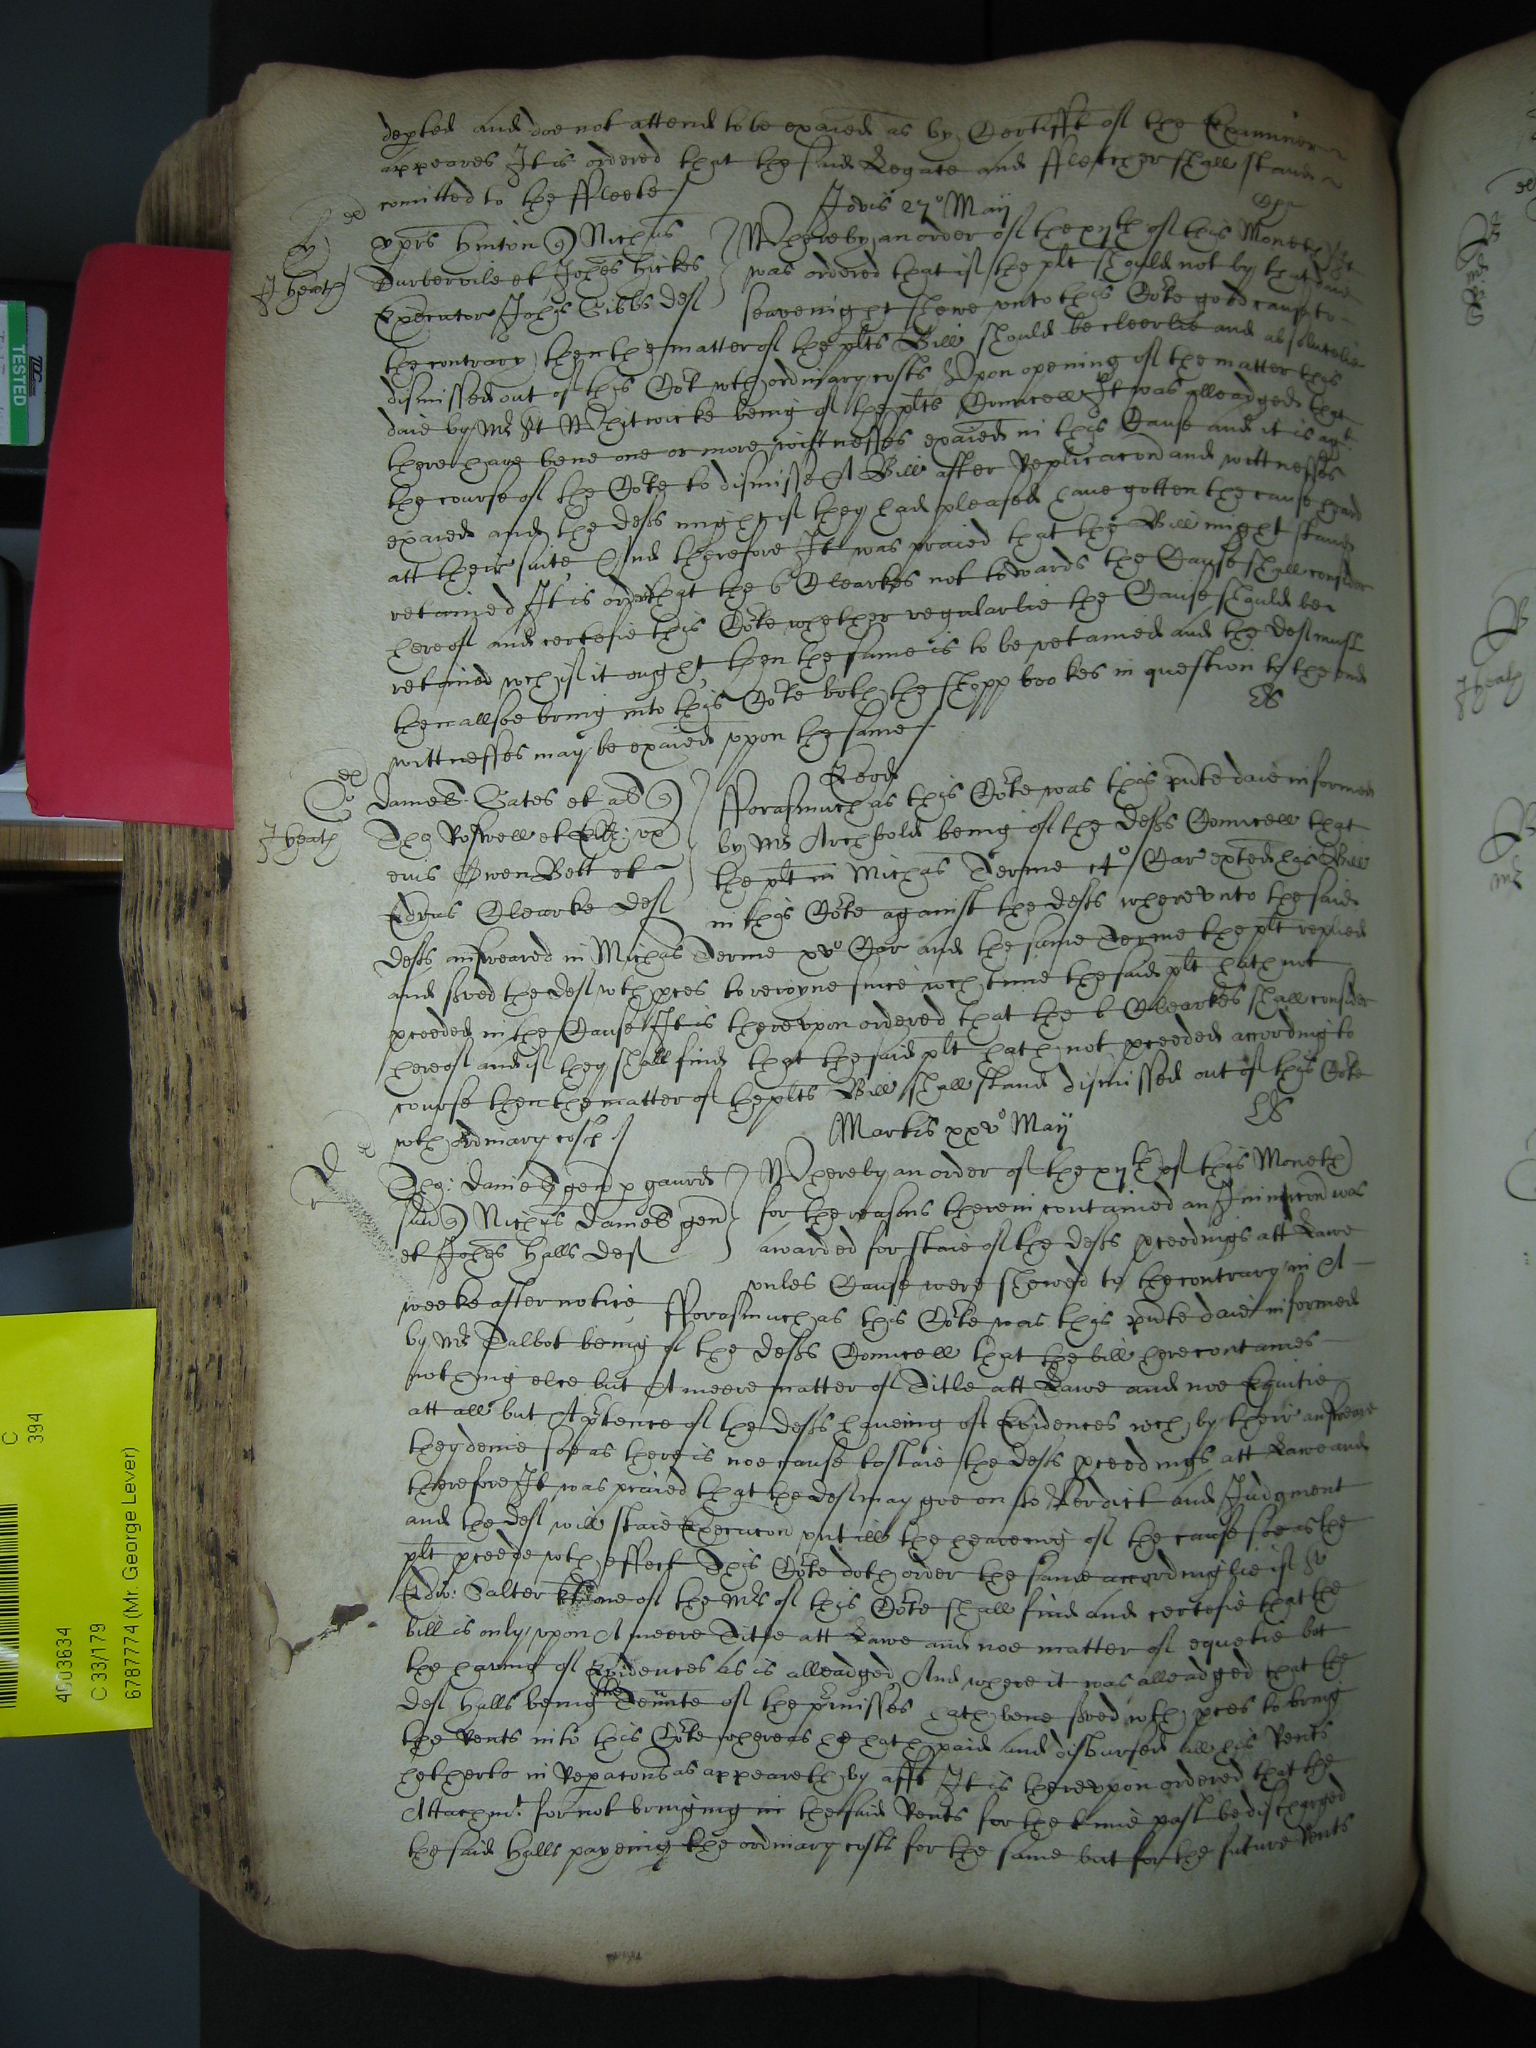 depted and doe not attend to be exaied as by Certifft of the Examiner
appeares It is ordered that the said Legate and ffletcher shall stand
comitted to the ffleete /
Jovis 27° May
xpr̃s Hinton Nichus
Turbervile et Johes Hickes
Executor Johis Gibbs def
J Heath
Whereby an order of the xijth of this Moneth it
was ordered that if the plt should not by that daie
seavenight shewe vnto this Co:te good cause to
the contrary then the matter of the plts Bill should be cleerlie and absolutelie
dismissed out of this Cot wth ordinary costs Vpon opening of the matter this
daie by Mr Whitwicke being of the plts Councell It was alleadged that
there have bene one or more wittnesses exaied in this Cause and it is agt
the course of the Co:te to dismisse A Bill after Replicacon and wittnesses
exaied and the defts might if they had pleased have gotten the cause heard
att their suite And therefore It was praied that the Bill might stand
retained It is ordred that the 6 Clearkes not towards the Cause shall consider
hereof and certefie this Co:te whether regularlie the Cause should be
retained wch if it ought then the same is to be retained and the def must
then allsoe bring into this Co:te both the shopp bookes in question to the end
wittnesses may be exaied vpon the same /
Eod
J Heath
Daniel Gates et al
Tho Roswell et vx
eius Owen Bett et
Edrus Clearke def
fforasmuch as this Co:te was this pnte daie informed
by Mr Archbold being of the defts Councell that
the plt in Michas Terme 14° Car exted his Bill
in this Co:te against the defts wherevnto the said
defts answeared in Michas Terme xv° Car and the same Terme the plt replied
and srved the def wth pces to reioyne since wch time the said plt hath not
pceeded in the Cause It is therevpon ordered that the 6 Clearkes shall consider
hereof and if they shall find that the said plt hath not pceeded according to
course then the matter of the plts Bill shall stand dismissed out of this Co:te
wth ordinary costs /
Martis xxv° May
Tho: Daniell gen p gaurd
suu Nichus Daniell gen
et Johes Halls def
Whereby an order of the xijth of this Moneth
for the reasons therein contained an Iniuncon was
awarded for staie of the defts pceedings att Lawe
vnles Cause were shewed to the contrary in A
weeke after notice fforasmuch as this Co:te was this pnte daie informed
by Mr Talbot being of the defts Councell that the bill here containes
nothing else but A meere matter of Title att Lawe and noe Equitie
att all but A ptence of the defts haveing of Evidences wch by their answeare
they denie soe as there is noe cause to staie the defts pceedings att Lawe and
therefore It was praied that the def may goe on to Verdict and Judgment
and the def will staie Execucon vntill the heareing of the cause soe as the
plt pceede wth effect This Co:te doth order the same accordinglie if Sr
Edw: Salter kt one of the Mrs of this Co:te shall find and certefie that the
bill is only vpon A meere Title att Lawe and noe matter of equetie but
the having of Evidences as is alleadged And where it was alleadged that the
def Halls being the Tennte of the pmisses hath bene srved wth pces to bring
the Rents into this Co:te whereas he hath paid and disbursed all his Rents
hetherto in Repacons as appeareth by afft It is therevpon ordered that the
Attachmt for not bringing in the said Rents for the time past be discharged
the said Halls payeing the ordinary costs for the same but for the future Rents
TESTED
C
394
4003634
C 33/179
6787774 (Mr. George Lever)